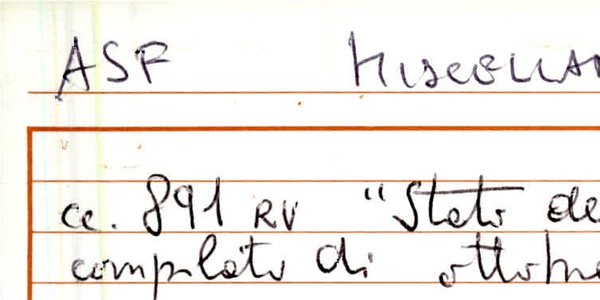 ASF MISCELLAN
cc. 891 RV "Stato de
compilato di ottobre